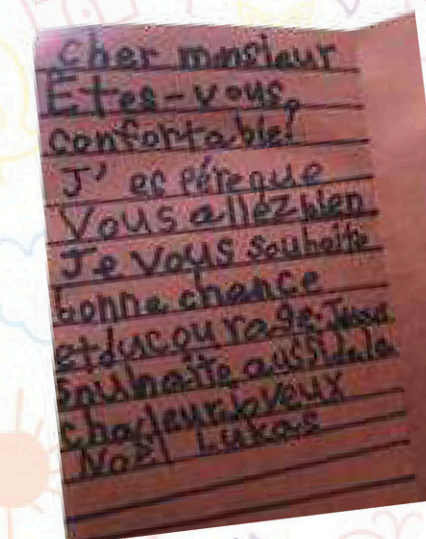 cher monsieur
Êtes-vous,
confortable?
J' espéreque
Vous allez bien
Je vous souhaite
bonne chance
etducourage. Jevous
souhaite aussi de la
chaleur. Joyeux
Noël Lukas